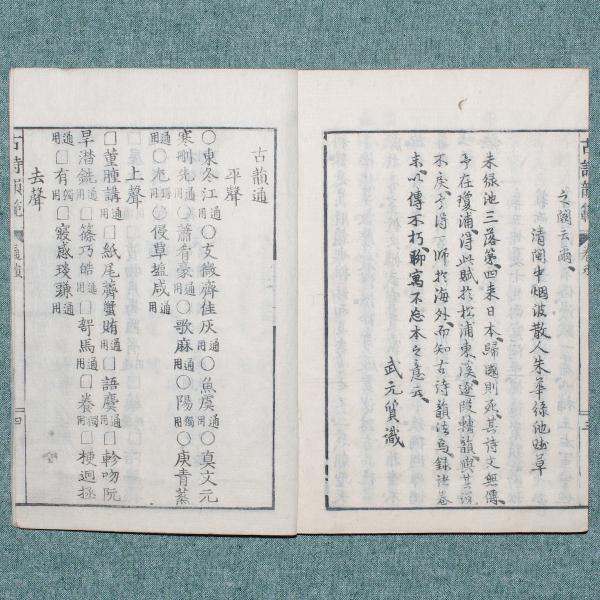 之闕云爾
清閩中烟波散人朱華綠池䟦草
朱綠池三落第四来日本歸國則死其詩文無傳
予在瓊浦得此賦於松浦東溪逐段轉韻與其説
不戾予得一師於海外而知古詩韻法焉録諸卷
末以傳不朽聊寓不忘本之意云
武元質識
古韻通
平聲
○東冬江通用○支微齊佳灰通用○魚虞通用○真文元
寒刪先通用○蕭肴豪通用○歌麻通用○陽獨用○庚青蒸
通用○尤獨用○侵覃鹽咸通用
上聲
□董腫講通用□紙尾薺蟹賄通用□語麌通用□軫吻阮
旱潸銑通用□篠巧皓通用□哿馬通用□養獨用□梗迥拯
通用□有獨用□寢感琰豏通用
去聲
古詩韻範
四